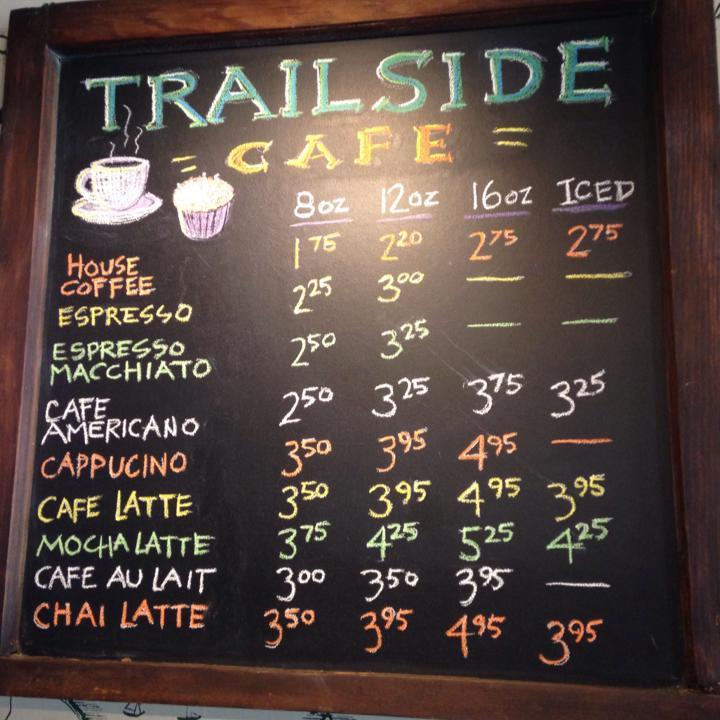 TRAILSIDE
= CAFE =
8oz 12oz 16oz ICED
HOUSE COFFEE 1 75 2 20 2 75 2 75
ESPRESSO 2 25 3 00 — —
ESPRESSO MACCHIATO 2 50 3 25 — —
CAFE AMERICANO 2 50 3 25 3 75 3 25
CAPPUCINO 3 50 3 95 4 95 —
CAFE LATTE 3 50 3 95 4 95 3 95
MOCHA LATTE 3 75 4 25 5 25 4 25
CAFE AU LAIT 3 00 3 50 3 95 —
CHAI LATTE 3 50 3 95 4 95 3 95